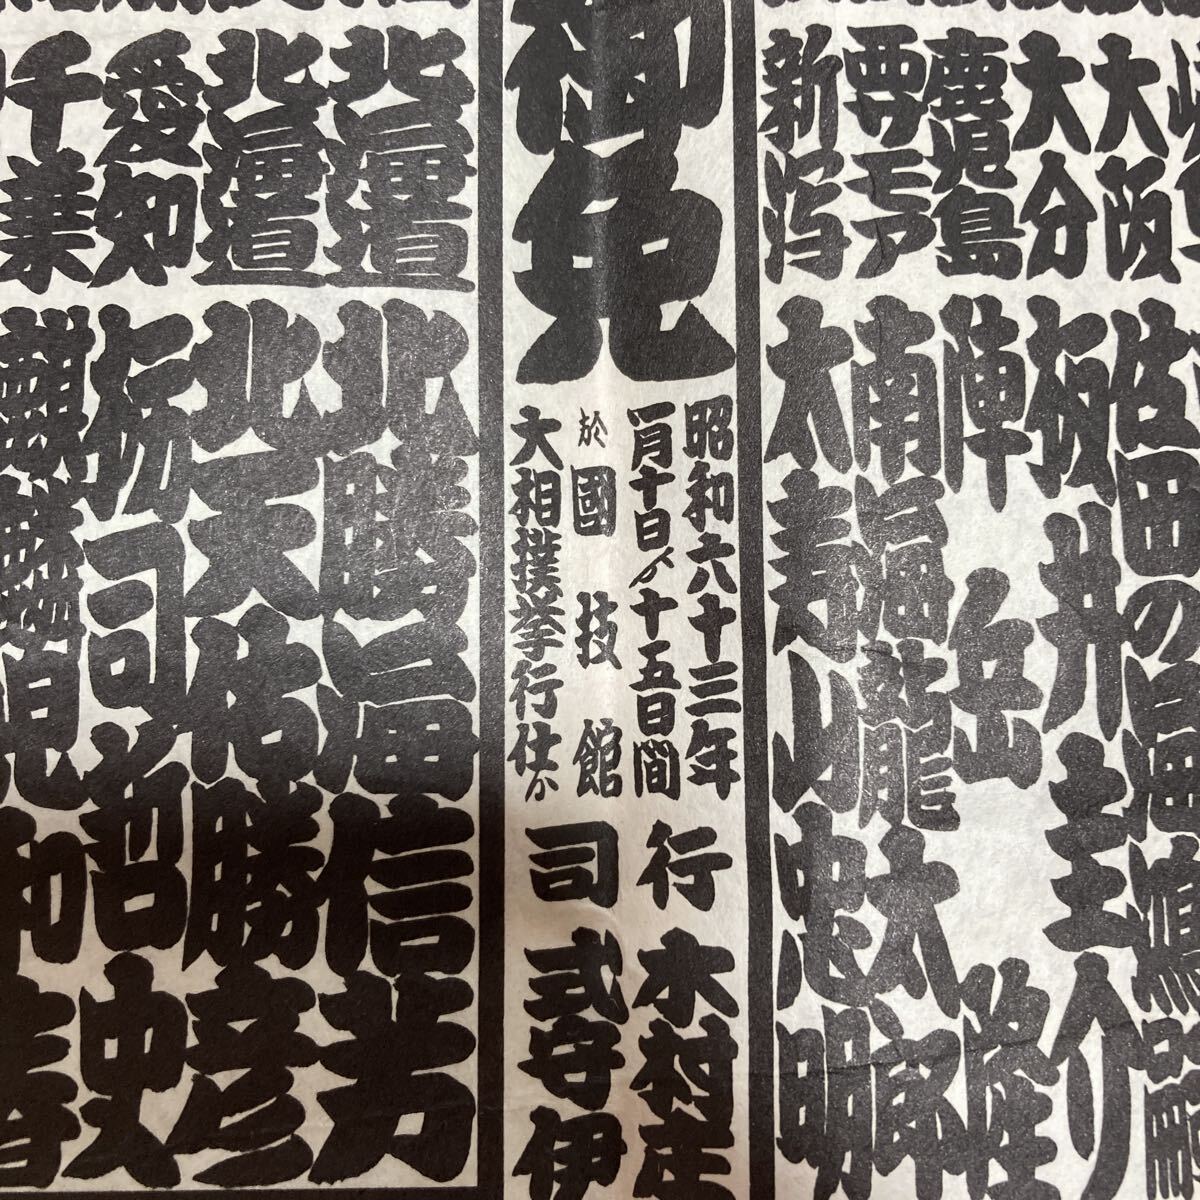 大阪
佐田の海鴻嗣
大分
坂井圭介
鹿児島
陣岳隆
西サモア
南海龍太郎
新潟
大寿山忠明
御免
昭和六十三年
一月十日ゟ十五日間
於國技館
大相撲挙行仕候
行司
木村庄
式守伊
北海道
北勝海信芳
北海道
北天佑勝彦
愛知
栃司哲史
千葉
麒麟児和春